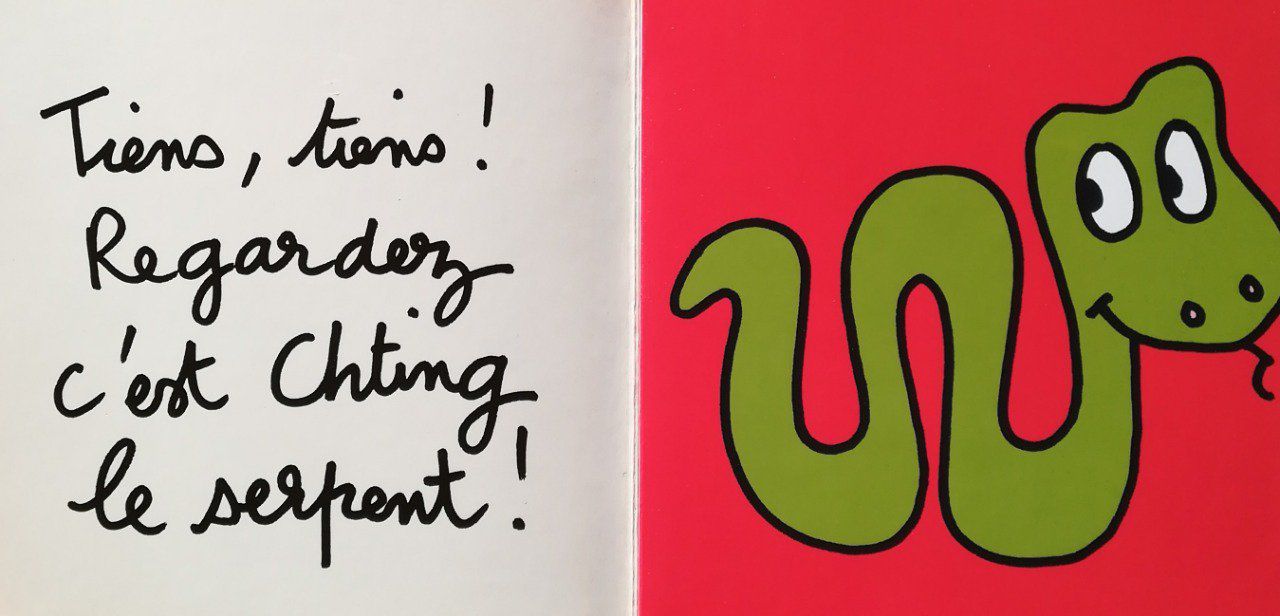 Tiens, tiens !
Regardez
c'est Chting
le serpent !